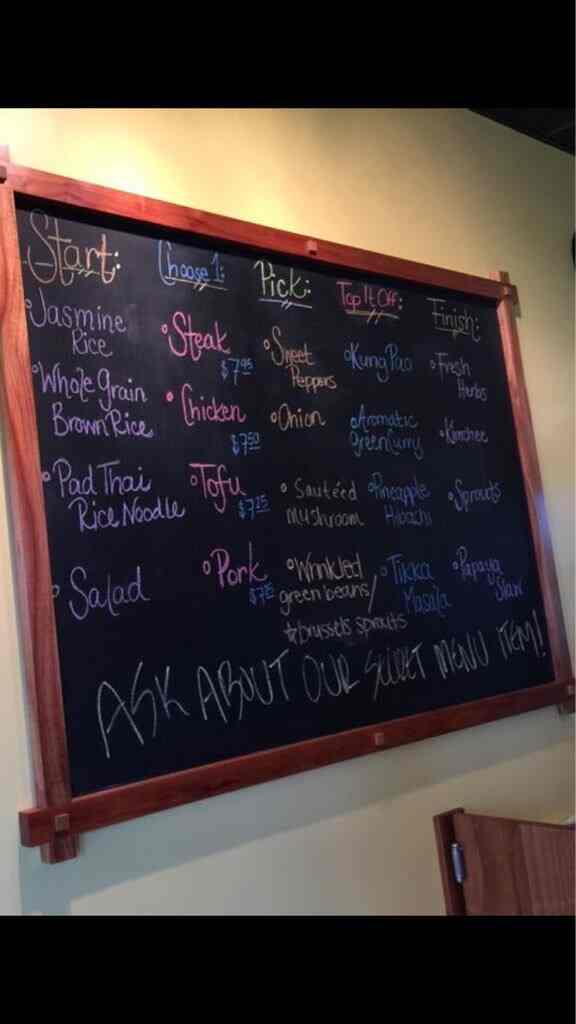 Start:
Jasmine
Rice
Whole Grain
Brown Rice
Pad Thai
Rice Noodle
Salad
Choose 1:
Steak
$7.95
Chicken
$7.50
Tofu
$7.25
Pork
Pick:
Sweet
Peppers
Onion
Sautéed
mushroom
Wrinkled
green beans/
brussels sprouts
Top It Off:
Kung Pao
Aromatic
green curry
Pineapple
Hibachi
Tikka
Masala
Finish:
Fresh
Herbs
Kimchee
Sprouts
Papaya
Slaw
ASK ABOUT OUR SECRET MENU ITEM!